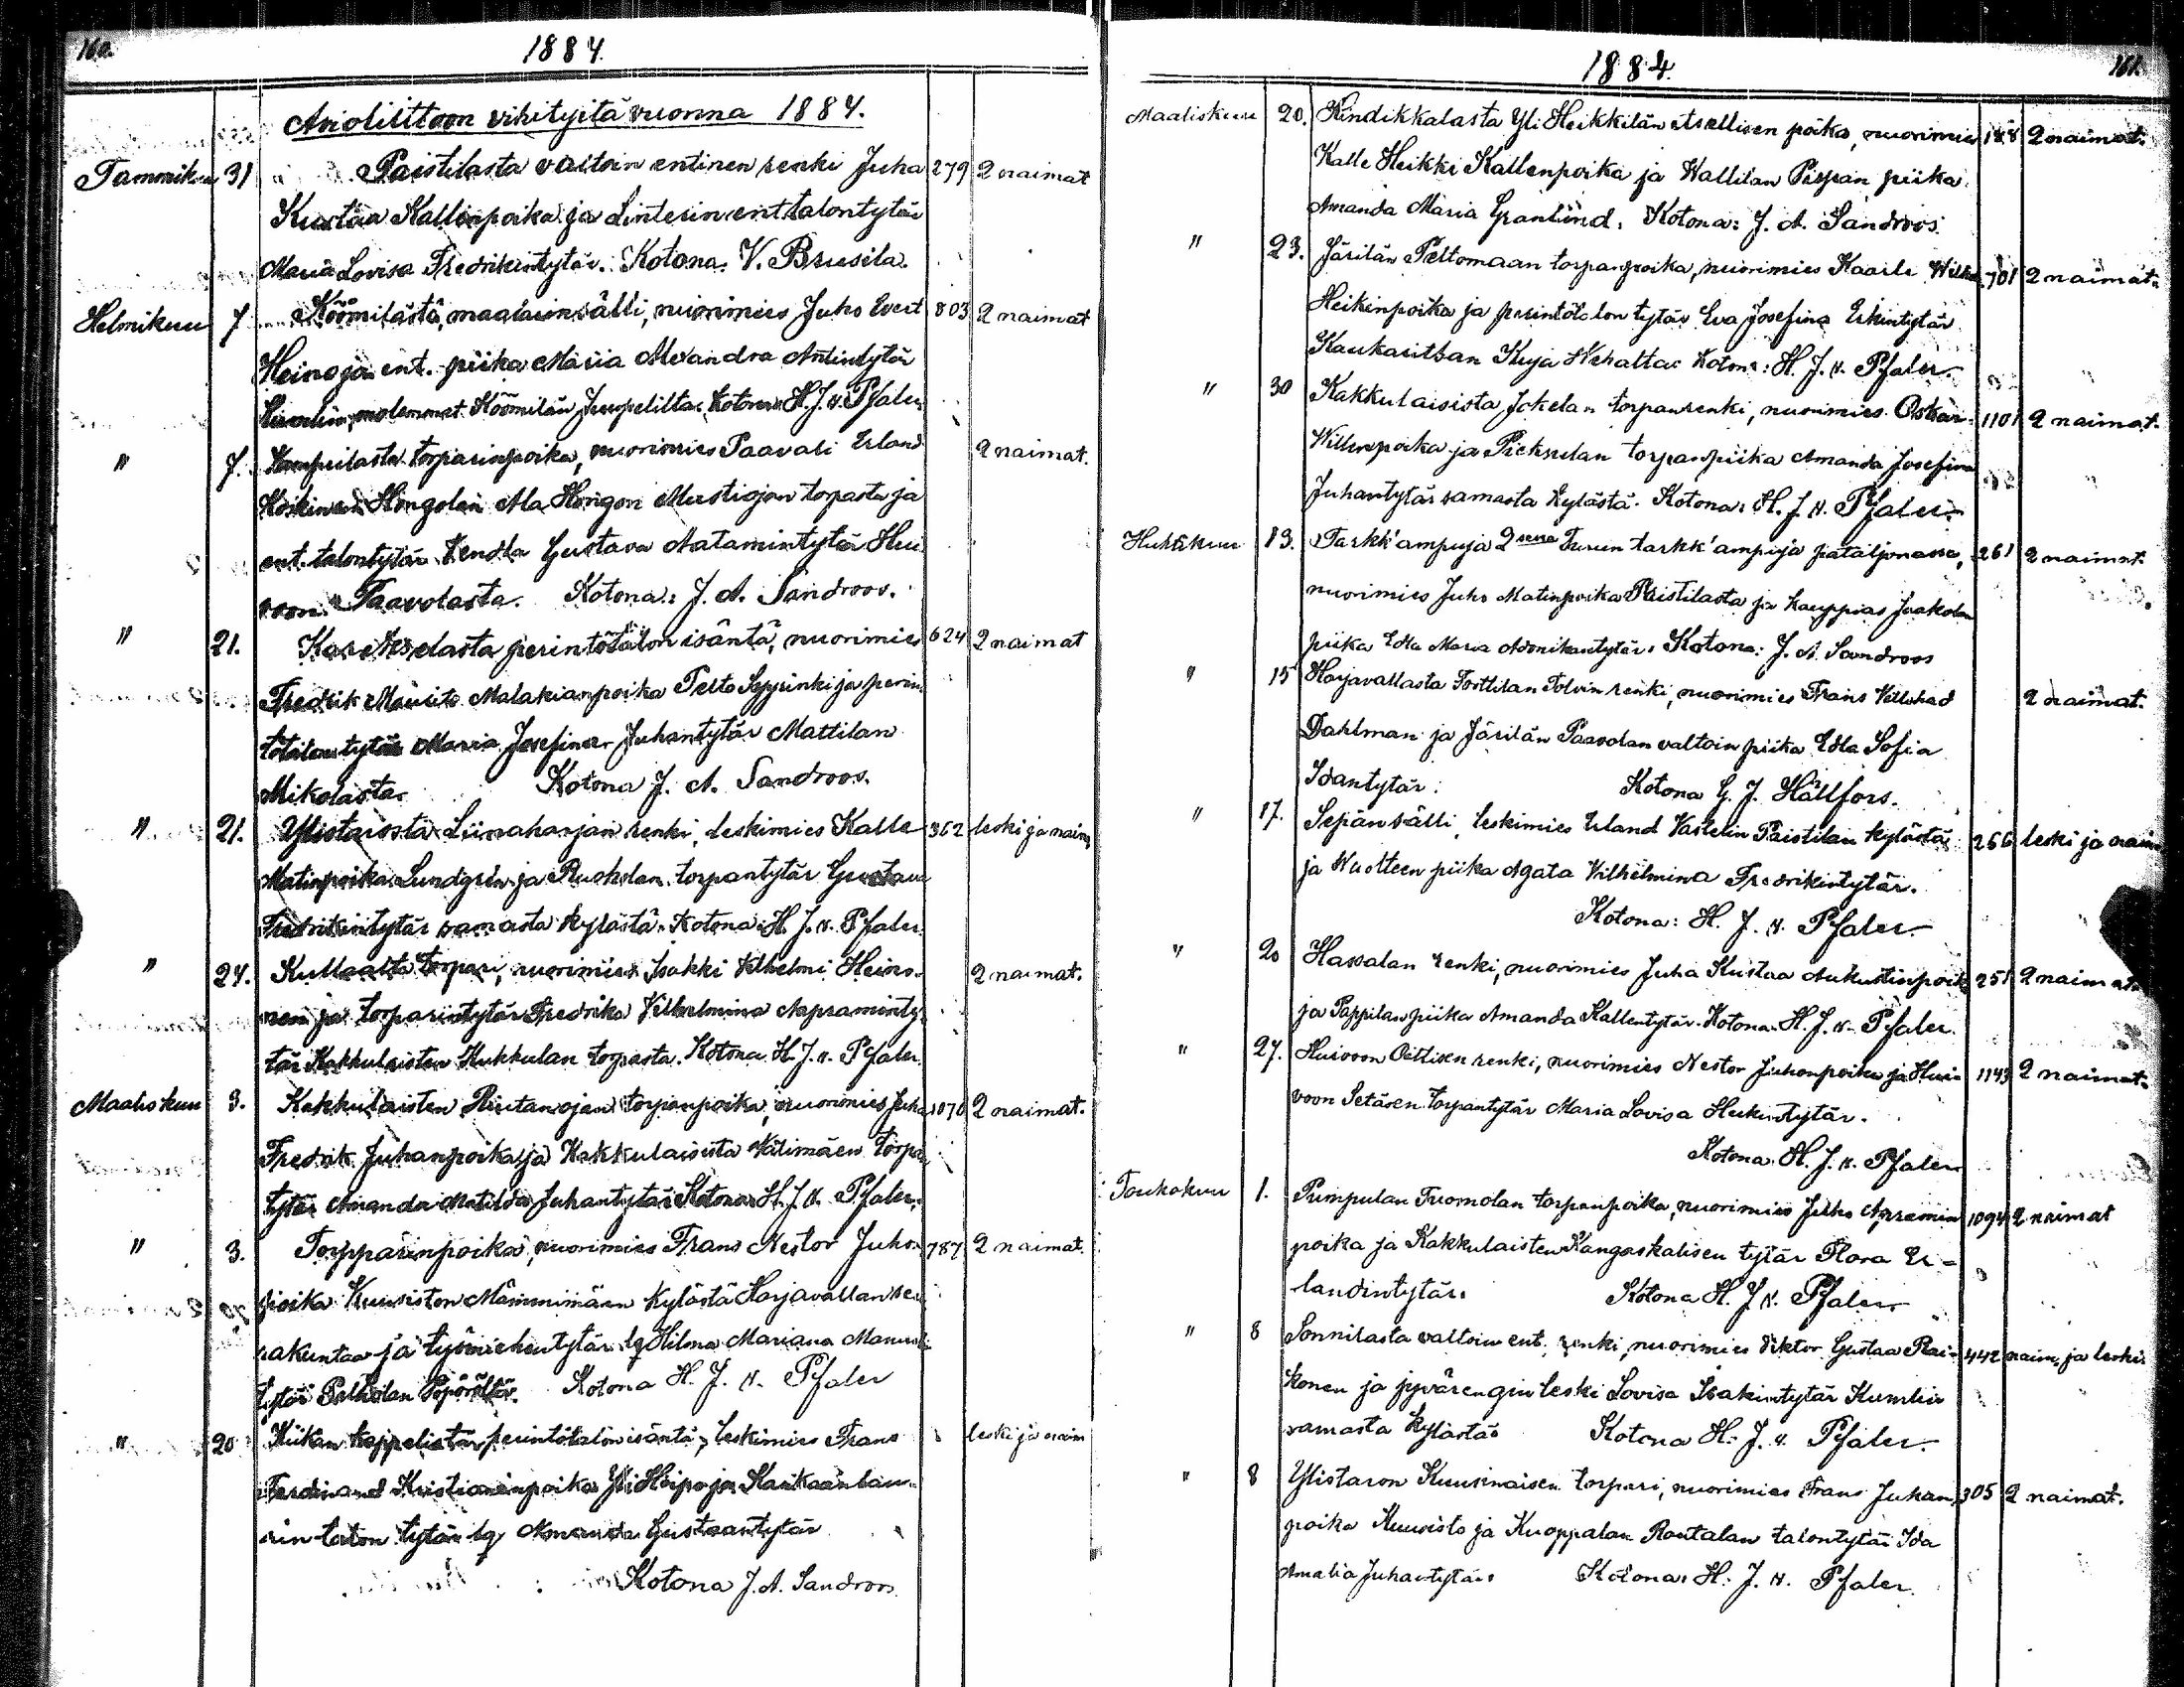 160.
1884.
Avioliittoon vihityitä vuonna 1884.
Tammikuu 31 Paistilasta valtoin entinen renki Juha 279 2 naimat
Kustaa Kallenpoika ja Linterin ent. talontytär
Maria Lovisa Fredrikintytär. Kotona. V. Brusila.
Helmikuu 7. Köömilästä, maalarinsälli, nuorimies Juho Evert 803 2 naimat
Heino ja ent. piika Maria Alexandra Antintytär
molemmat Köömilän Kotona H. J. v. Pfaler
" 7. torparinpoika, nuorimies Paavali Erland 2 naimat.
Koskinen Hongolan Ala Hongon Mustiojan torpasta ja
ent. talontytär Vendla Gustava Aatamintytär Hui
voon Paavolasta. Kotona: J. A. Sandroos.
" 21. perintötalon isäntä, nuorimies 624 2 naimat
Fredrik Maurits Malakianpoika Pelto Seppinki ja perin
tötalon tytär Maria Josefina Juhantytär Mattilan
Mikolasta. Kotona J. A. Sandroos.
" 21. Ylistarosta Liinaharjan renki, leskimies Kalle 362 leski ja naim.
Matinpoika Lundgrén ja Ruoholan torpantytär Gustava
Fredrikintytär samasta kylästä. Kotona: H. J. v. Pfaler.
" 24. Kullaalta torpari, nuorimies Isakki Vilhelmi Heino- 2 naimat.
nen ja torparintytär Fredrika Vilhelmina Apraminty
tär Kakkulaisten Kukkulan torpasta. Kotona. H. J. v. Pfaler.
Maaliskuu 3. Kakkulaisten Riutanojan torpanpoika, nuorimies Juha 1070 2 naimat.
Fredrik Juhanpoika ja Kakkulaisista Välimäen torpan
tytär Amanda Matilda Juhantytär Kotona H. J. v. Pfaler.
" 3. Torpparinpoika, nuorimies Frans Nestor Juho 787 2 naimat.
poika Kuusiston Mämmimäen kylästä Harjavallan seu
rakuntaa ja työmiehentytär Iq Hilma Mariana Manueli
tytär Kotona H. J. v. Pfaler
" 20 Kiikan kappelista perintötalon isäntä, leskimies Frans leski ja naim
Ferdinand Kristianinpoika Yli Heipo ja Karikaanlau-
rin talon tytär Iq Amanda Gustaantytär
Kotona J. A. Sandroos.
1884.
161.
Maaliskuu 20. Kindikkalasta Yli Heikkilän itsellisen poika, nuorimies 188 2 naimat.
Kalle Heikki Kallenpoika ja Vallilan Piispan piika
Amanda Maria Granlund. Kotona: J. A. Sandroos.
" 23. Järilän Peltomaan torpanpoika, nuorimies Kaarle Wilho 701 2 naimat.
Heikinpoika ja perintötalon tytär Eva Josefina Erkintytär
Kaukaritsan Kuja Kotona: H. J. v. Pfaler.
" 30 Kakkulaisista Jokelan torpanrenki, nuorimies Oskar 1101 2 naimat.
Villenpoika ja torpanpiika Amanda Josefina
Juhantytär samasta kylästä. Kotona: H. J. v. Pfaler.
Huhtikuu 13. Tarkk'ampuja 2sessa Turun tarkk'ampuja pataljonassa, 261 2 naimat.
nuorimies Juho Matinpoika Paistilasta ja kauppias Jaakolan
piika Edla Maria Adonikantytär. Kotona: J. A. Sandroos
" 15 Harjavallasta Torttilan Tolvin renki, nuorimies Frans Villehad 2 naimat.
Dahlman ja Järilän Paavolan valtoin piika Edla Sofia
Idantytär. Kotona G. J. Hällfors.
" 17. Sepän sälli, leskimies Erland Vastelin Paistilan kylästä 266 leski ja naim
ja Nuotteen piika Agata Vilhelmina Fredrikintytär.
Kotona: H. J. v. Pfaler.
" 20 Hassalan renki, nuorimies Juha Kustaa Aukustinpoika 251 2 naimat.
ja Pappilan piika Amanda Kallentytär. Kotona. H. J. v. Pfaler.
" 27. Huivoon Oettisen renki, nuorimies Nestor Juhonpoika ja Hui- 1143 2 naimat.
voon Setäsen torpantytär Maria Lovisa Heikintytär.
Kotona. H. J. v. Pfaler
Toukokuu 1. Pumpulan Tuomolan torpanpoika, nuorimies Juho Apramin 1094 2 naimat
poika ja Kakkulaisten Kangaskalisen tytär Flora Er-
landintytär. Kotona H. J. v. Pfaler
" 8 Sonnilasta valtoin ent. renki, nuorimies Viktor Gustaa Rai- 442 naim. ja leski.
konen ja jyvärengin leski Lovisa Isakintytär Kumlin
samasta kylästä. Kotona H. J. v. Pfaler.
" 8 Ylistaron Kuusinaisen torpari, nuorimies Frans Juhan 305 2 naimat.
poika Kuusisto ja Kuoppalan Rautalan talontytär Ida
Amalia Juhantytär. Kotona: H. J. v. Pfaler.